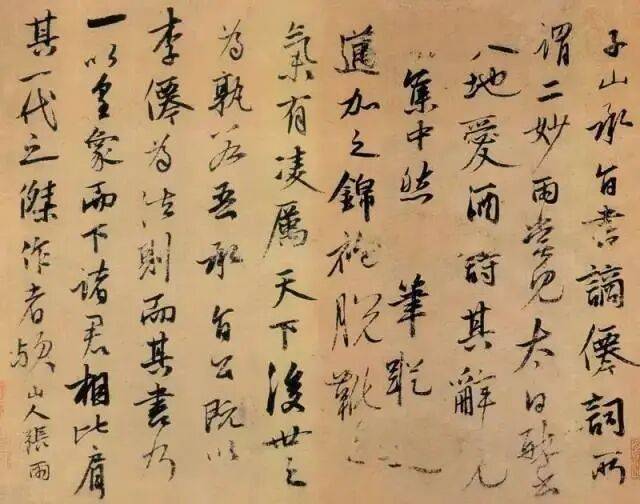 子山承旨書謫僊詞所
謂二妙雨嘗見太白醉書
地愛酒詩其辭見
集中然筆蹤
邁加之錦袍脫靴之
氣有凌厲天下後世之
為孰若吾承旨公既以
李僊為法則而其書乃
一以皇象而下諸君相比肩
其一代之傑作者歟山人張雨